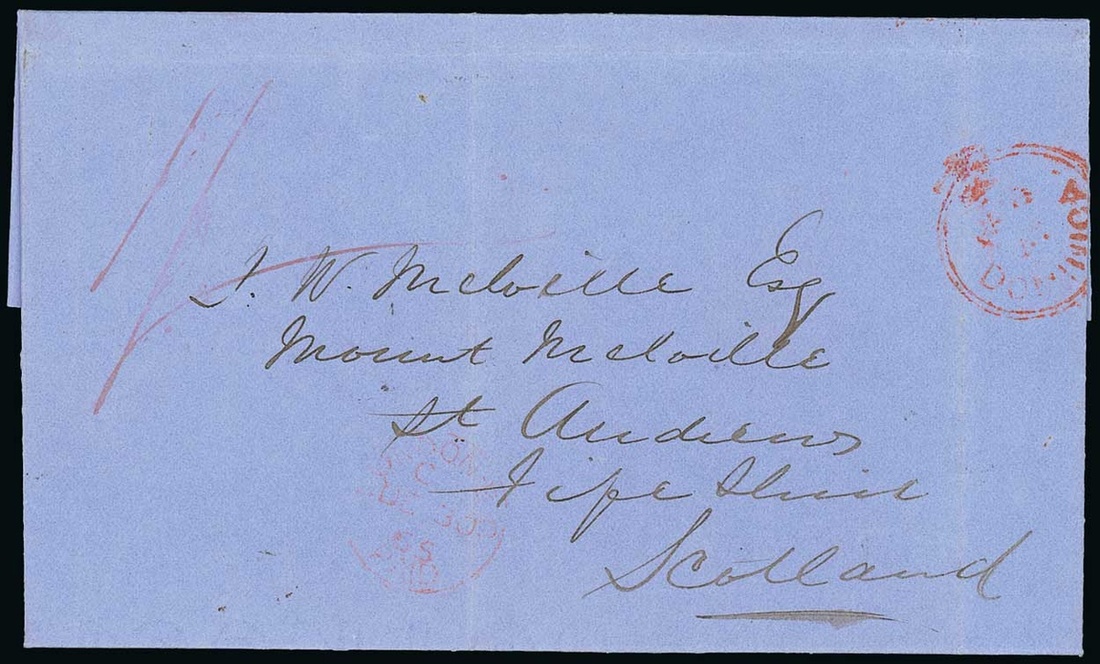 J. W. Melville Esq
Mount Melville
St Andrews
Fife Shire
Scotland
1/
PAID